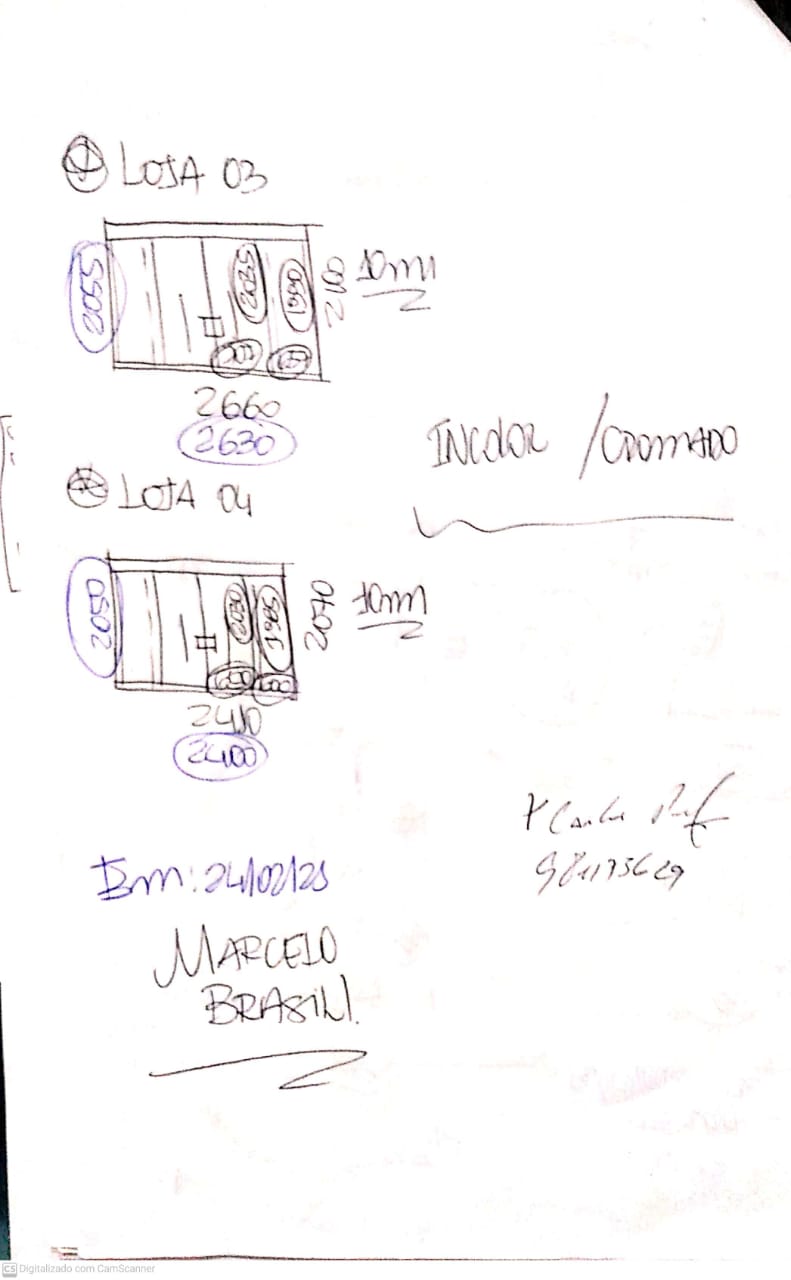 LOJA 03
2055
2035
1990
2100
10mm
2660
2630
INCOLOR / CROMADO
LOJA 04
2050
2030
1985
2070
10mm
2410
2400
Em: 24/02/25
MARCELO
BRASIL
CS Digitalizado com CamScanner